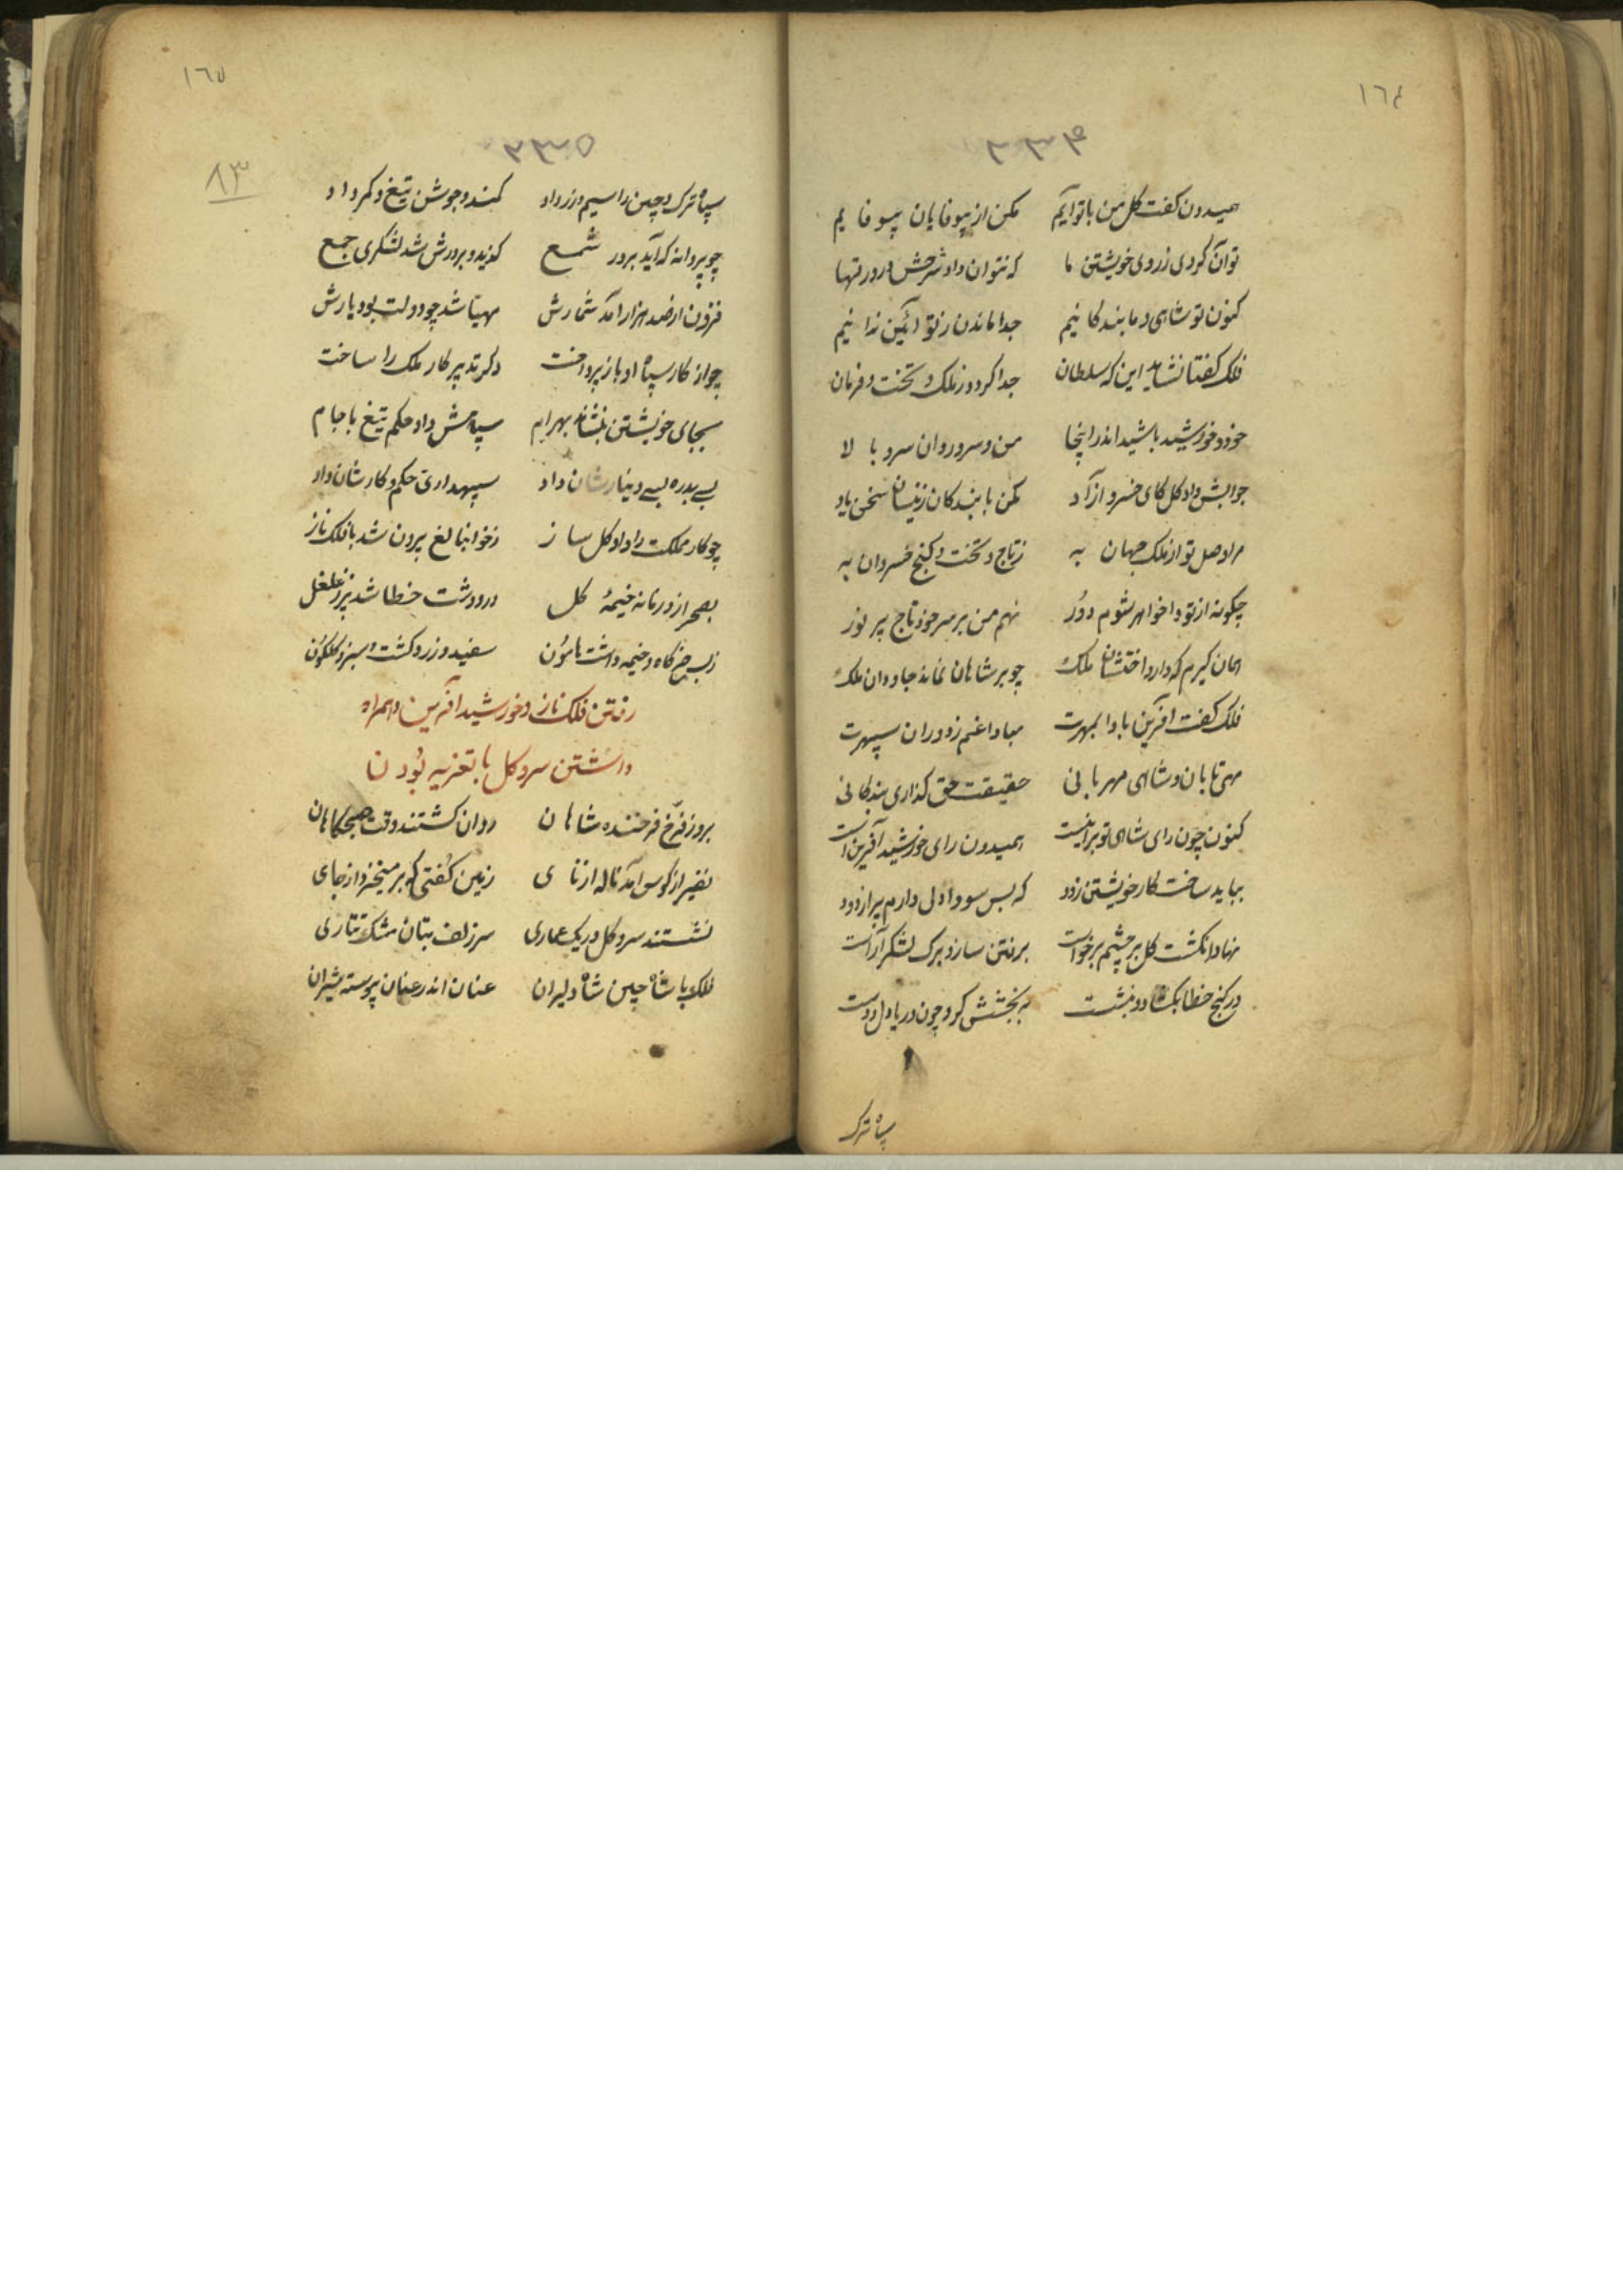 ١٦٤
٢٣٤
همیدون کفت کل من با توایم مکن از بیوفایان بیوفایم
تو آن کردی ز روی خویشتن ما که نتوان داد شرحش در ورقها
کنون تو شاهی و ما بندکانیم جدا ماندن ز تو آئین ندانیم
فلک کفتا نشاید این که سلطان جدا کردد ز ملک و تخت و فرمان
خود و خورشید باشید اندر اینجا من و سرو روان سرو بالا
جوابش داد کل کای خسرو آزاد مکن با بندکان زینسان سخن یاد
مرا وصل تو از ملک جهان به ز تاج و تخت و کنج خسروان به
چکونه از تو وا خواهر شوم دور نهم من بر سر خود تاج پر نور
همان کیرم که دارد اختشان ملک چو بر شاهان نماند جاودان ملک
فلک کفت آفرین بادا بمهرت مبادا غم ز دوران سپهرت
مهی تابان و شاهی مهربانی حقیقت حق کذاری بندکانی
کنون چون رای شاهی تو بر اینست همیدون رای خورشید آفرین است
بباید ساخت کار خویشتن زود که بس سودا دلی دارم پر از دود
نهاد انکشت کل بر چشم برخواست برفتن ساز و برک لشکر آراست
در کنج خطا بکشاد و بنشست به بخشش کرد چون دریا دل و دست
سپاه ترک
١٦٥
٢٣٥
٨٣
سپاه ترک و چین را سیم و زر داد کمند و جوشن و تیغ و کمر داد
چو پروانه که آید بر در شمع کزیده بر درش شد لشکری جمع
فزون از صد هزار آمد شمارش مهیا شد چو دولت بود یارش
چو از کار سپاه او باز پرداخت دکر تدبیر کار ملک را ساخت
بجای خویشتن بنشاند بهرام سپاهش داد حکم تیغ با جام
بسے بدره بسے دینارشان داد سپهداری حکم و کارشان داد
چو کار مملکت را داد کل ساز ز خوانبالغ برون شد با فلک ناز
بصحرا زد زمانه خیمهٔ کل در و دشت خطا شد پر ز غلغل
ز بس خرکاه و خیمه دشت هامون سفید و زرد کشت و سبز و کلکون
رفتن فلک ناز و خورشید آفرین و همراه
داشتن سرو کل با تعزیه بودن
بروز فرخ فرخنده شاهان روان کشتند وقت صبحکاهان
نفیر از کوس آمد ناله از نای زمین کفتی که بر میخیزد از جای
نشستند سرو کل در یک عماری سر زلف بتان مشک تتاری
فلک با شاه چین شاه دلیران عنان اندر عنان پیوسته شیران